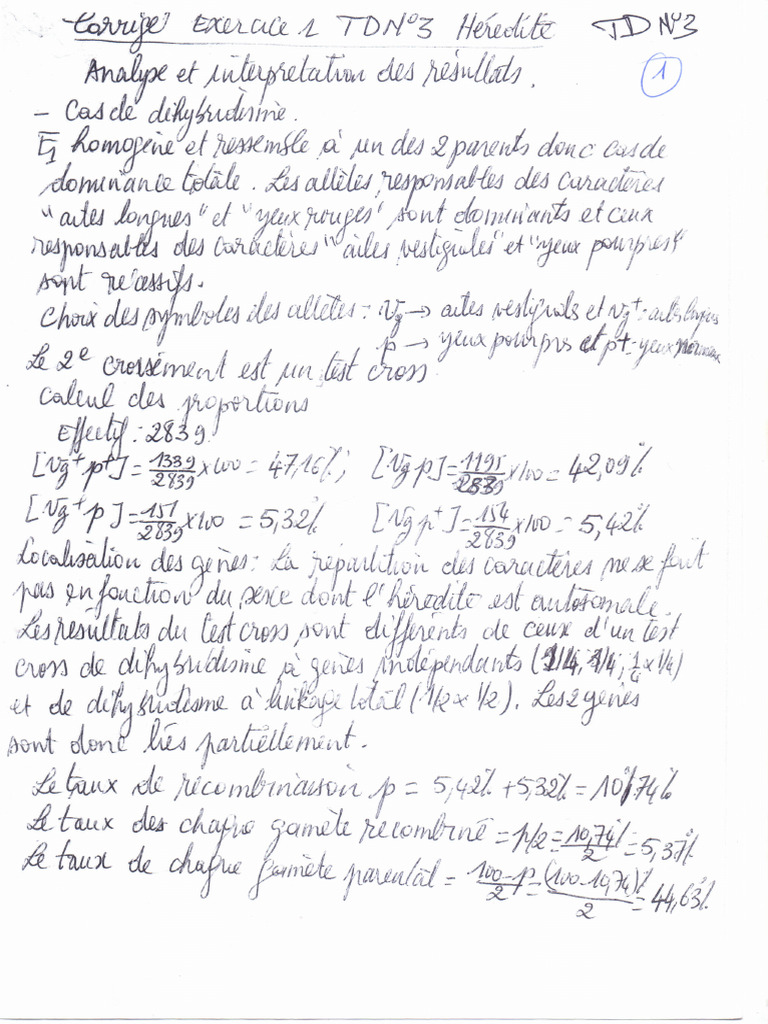 Corrigé Exercice 1 TD N°3 Hérédité TD N°3
Analyse et interpretation des résultats.
1
- Cas de dihybridisme.
F1 homogène et ressemble à un des 2 parents donc cas de
dominance totale. Les allèles responsables des caractères
"ailes longues" et "yeux rouges" sont dominants et ceux
responsables des caractères "ailes vestigiales" et "yeux pourpres"
sont récessifs.
Choix des symboles des allèles : vg → ailes vestigials et vg+: ailes longues
p → yeux pourpres et p+ - yeux normaux
Le 2e crossement est un test cross
Calcul des proportions
Effectif : 2839
[Vg+ p+] = 1339/2839 x100 = 47,16% ; [Vg p] = 1195/2839 x100 = 42,09%
[Vg+ p] = 151/2839 x100 = 5,32% [Vg p+] = 154/2839 x100 = 5,42%
Localisation des gènes : La répartition des caractères ne se fait
pas en fonction du sexe dont l'hérédité est autosomale.
Les résultats du test cross sont différents de ceux d'un test
cross de dihybridisme à gènes indépendants (1/4, 1/4, 1/4 x 1/4)
et de dihybridisme à linkage total (1/2 x 1/2). Les 2 gènes
sont donc liés partiellement.
Le taux de recombinaison p = 5,42% + 5,32% = 10,74%
Le taux des chaque gamète recombiné = p/2 = 10,74%/2 = 5,37%
Le taux de chaque gamète parental = 100-p/2 = (100-10,74)%/2 = 44,63%